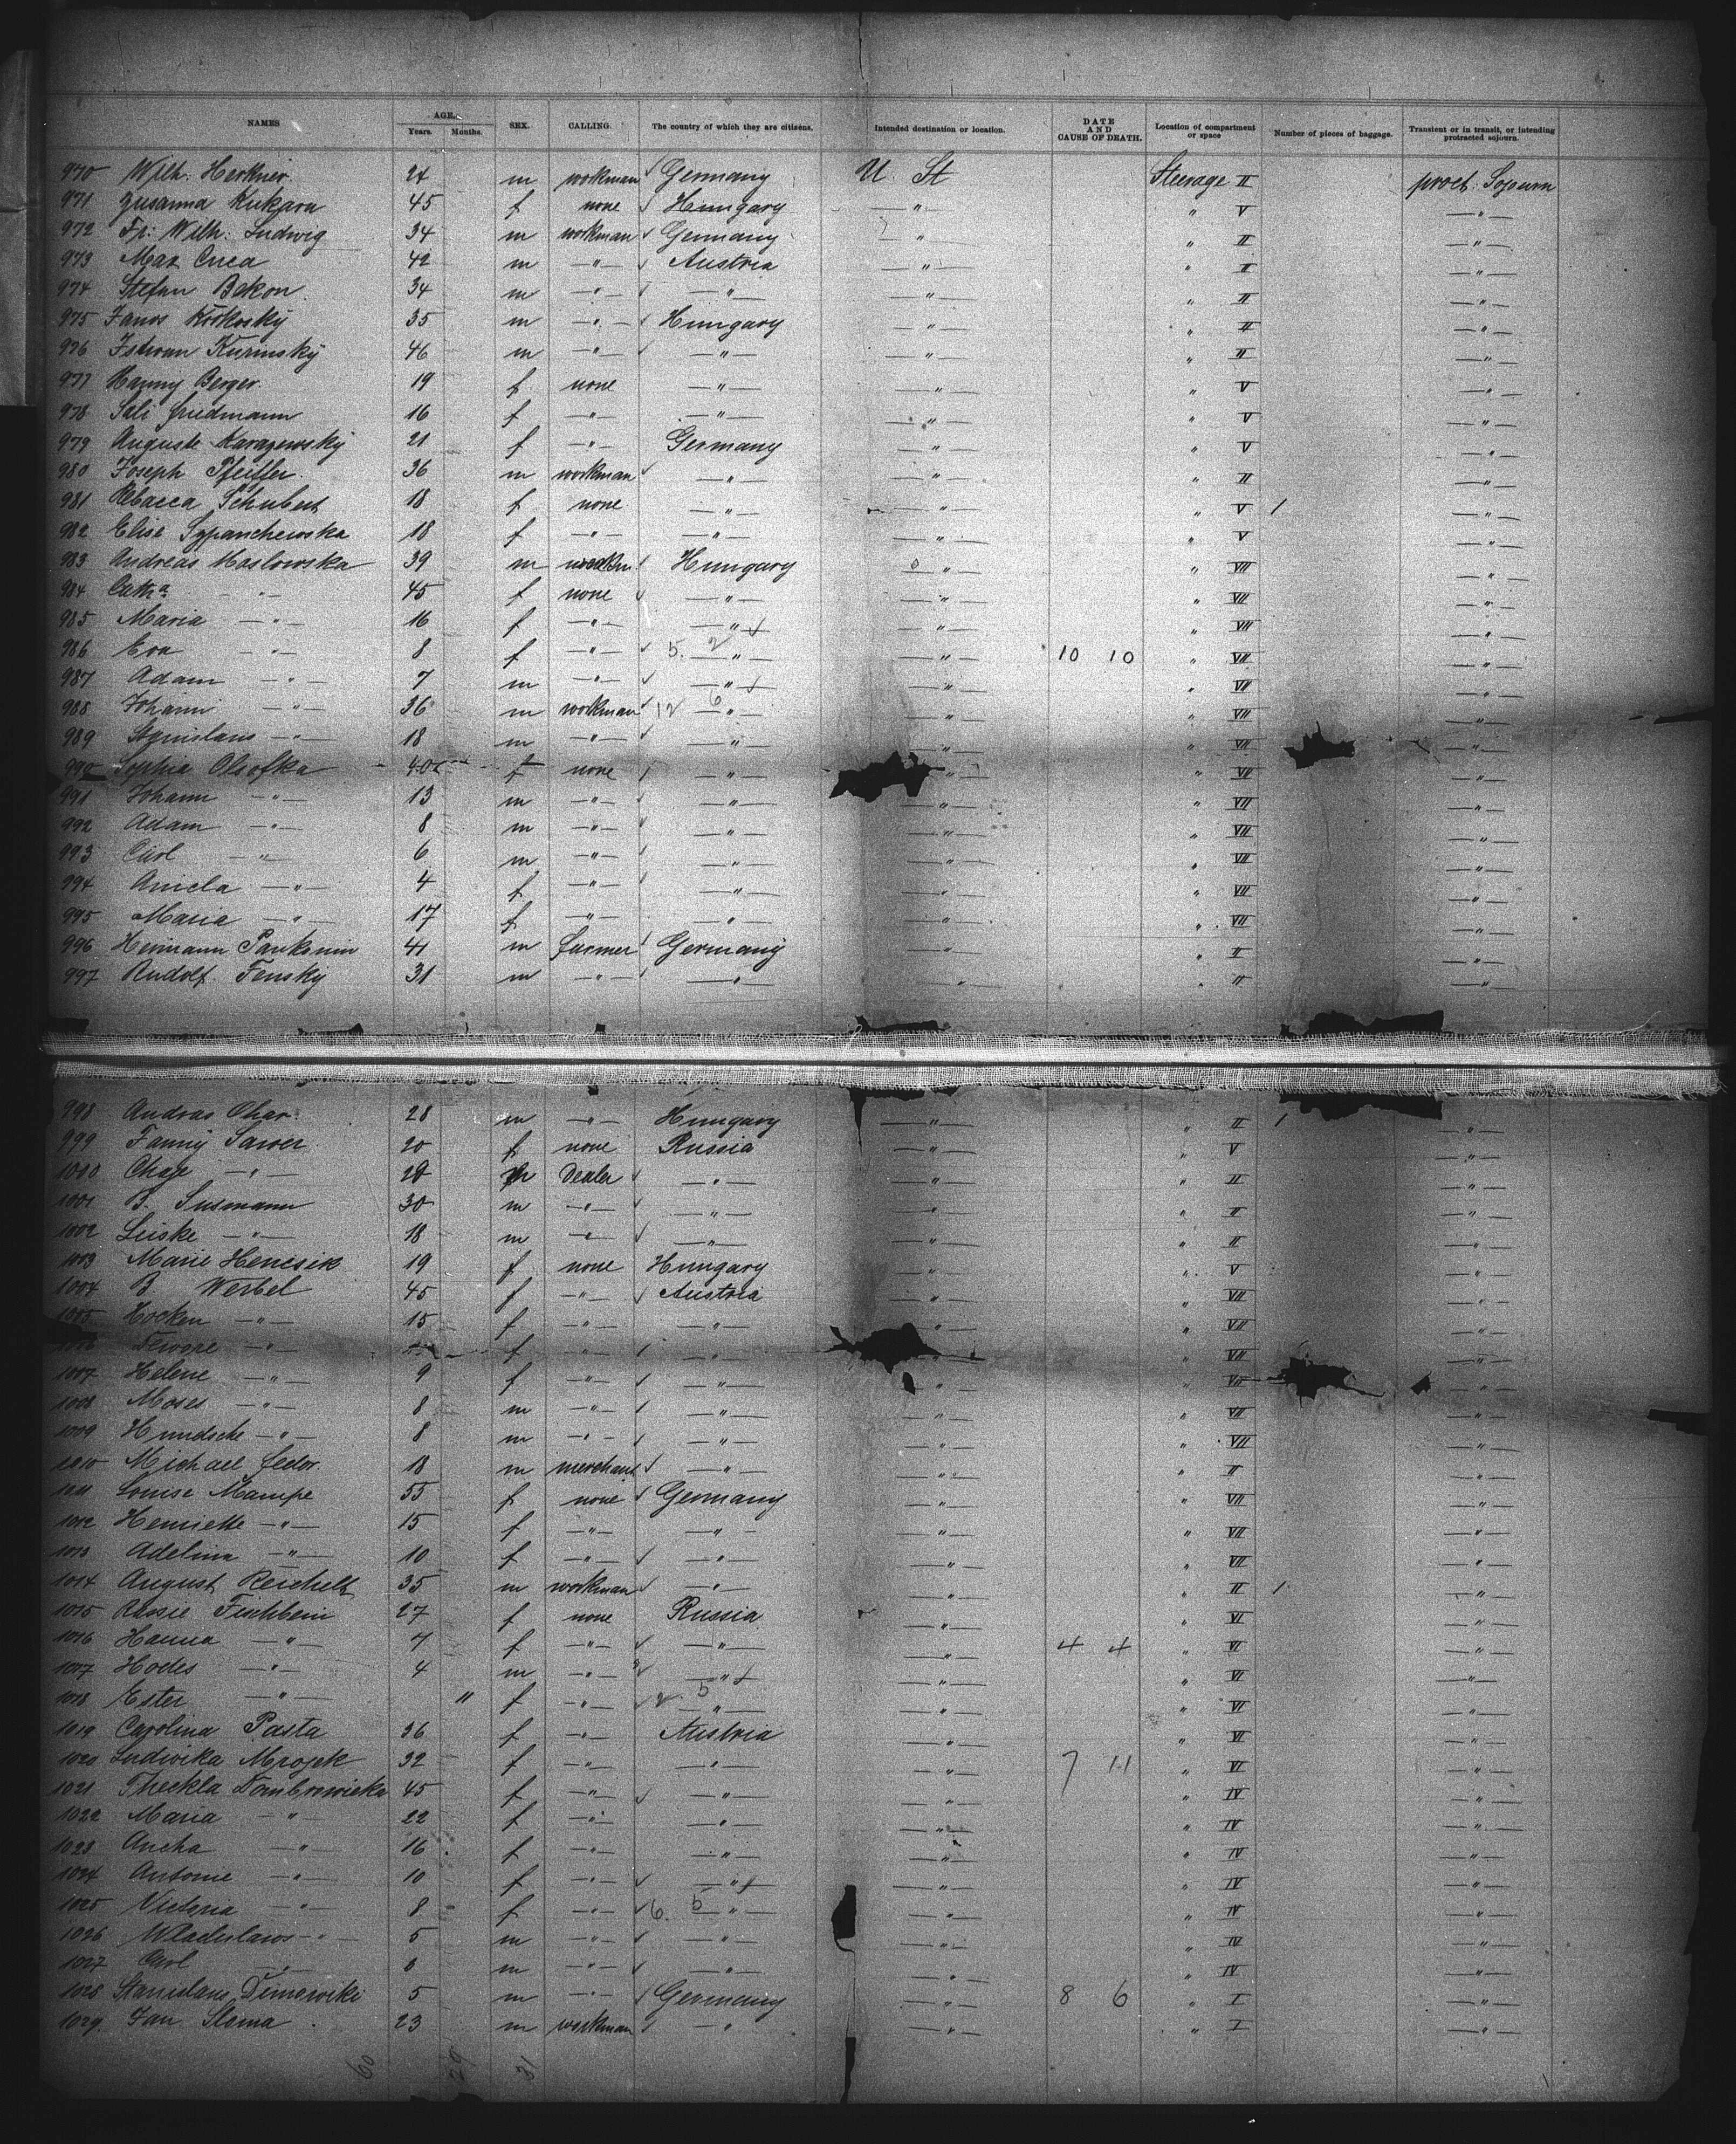 NAMES AGE. Years. Months. SEX. CALLING. The country of which they are citizens. Intended destination or location. DATE AND CAUSE OF DEATH. Location of compartment or space Number of pieces of baggage. Transient or in transit, or intending protracted sojourn.
970 Wilh. Herkner 24 m workman √ Germany U. St Steerage II prot. Sojourn
971 Zusanna Kukara 45 f none √ Hungary —"— " V —"—
972 Fr: Wilh: Ludwig 34 m workman √ Germany —"— " II —"—
973 Max Cuca 42 m —"— √ Austria —"— " II —"—
974 Stefan Bakon 34 m —"— √ —"— —"— " II —"—
975 Janos 35 m —"— √ Hungary —"— " II —"—
976 Istwan Kurinsky 46 m —"— √ —"— —"— " II —"—
977 Hanny Berger 19 f none —"— —"— " V —"—
978 Sali Friedmann 16 f —"— —"— —"— " V —"—
979 Auguste 21 f —"— Germany —"— " V —"—
980 Joseph Pfeiffer 36 m workman √ —"— —"— " II —"—
981 Rebacca Schubert 18 f none —"— —"— " V 1 —"—
982 Elise 18 f —"— —"— —"— " V —"—
983 Andreas Maslowska 39 m √ Hungary —"— " VII —"—
984 Catha —"— 45 f none √ —"— —"— " VII —"—
985 Maria —"— 16 f —"— —"— —"— " VII —"—
986 Eva —"— 8 f —"— √ 5. 2 —"— —"— 10 10 " VII —"—
987 Adam —"— 7 m —"— √ —"— —"— " VII —"—
988 Johann —"— 36 m workman √ 12 6 —"— —"— " VII —"—
989 —"— 18 m —"— √ —"— —"— " VII —"—
990 Sophia Olsofka 40 f none √ —"— —"— " VII —"—
991 Johann —"— 13 m —"— √ —"— —"— " VII —"—
992 Adam —"— 8 m —"— √ —"— —"— " VII —"—
993 Carl —"— 6 m —"— √ —"— —"— " VII —"—
994 Aniela —"— 4 f —"— √ —"— —"— " VII —"—
995 Maria —"— 17 f —"— —"— —"— " VII —"—
996 Hermann 41 m farmer √ Germany " " II —"—
997 Rudolf Fensky 31 m —"— √ —"— " " II —"—
998 Andras Ohar 28 m —"— Hungary —"— " II 1 —"—
999 Fanny 20 f none Russia —"— " V —"—
1000 Chaje —"— m Dealer √ —"— —"— " II —"—
1001 B. Susmann 30 m —"— √ —"— —"— " II —"—
1002 Leiske —"— 18 m —"— √ —"— —"— " II —"—
1003 Marie Hencsik 19 f none Hungary " " V —"—
1004 B. Werbel 45 f —"— √ Austria —"— " VII —"—
1005 —"— 15 f —"— —"— —"— " VII —"—
1006 —"— f —"— √ —"— —"— " VII —"—
1007 Helene —"— 9 f —"— √ —"— —"— " VII —"—
1008 Moses —"— 8 m —"— √ —"— —"— " VII —"—
1009 Hundsche —"— 8 m —"— √ —"— —"— " VII —"—
1010 Michael Fedor 18 m merchant √ —"— —"— " II —"—
1011 Louise Mampe 55 f none √ Germany —"— " VII —"—
1012 Henriette —"— 15 f —"— —"— —"— " VII —"—
1013 Adeline —"— 10 f —"— √ —"— —"— " VII —"—
1014 August Reichelt 35 m workman √ —"— —"— " II 1 —"—
1015 Fischbein 27 f none Russia —"— " VI —"—
1016 Hanna —"— 7 f —"— √ —"— —"— 4 4 " VI —"—
1017 Hodes —"— 4 m —"— √ —"— —"— " VI —"—
1018 Ester —"— " f —"— √ 2. 5 —"— —"— " VI —"—
1019 Carolina Pasta 36 f —"— Austria —"— " VI —"—
1020 Ludwika Mrozek 32 f —"— —"— —"— 7 11 " VI —"—
1021 Theckla Dombrowicka 45 f —"— √ —"— —"— " IV —"—
1022 Maria —"— 22 f —"— —"— —"— " IV —"—
1023 —"— 16 f —"— —"— —"— " IV —"—
1024 Antonie —"— 10 f —"— √ —"— —"— " IV —"—
1025 Victoria —"— 8 f —"— √ 6. 5 —"— —"— " IV —"—
1026 Wladislaws —"— 5 m —"— √ —"— —"— " IV —"—
1027 Carl —"— m —"— √ —"— —"— " IV —"—
1028 Stanislaus 5 m —"— √ Germany —"— 8 6 " I —"—
1029. Jan Slama 23 m workman √ —"— —"— " I —"—
60 29 31